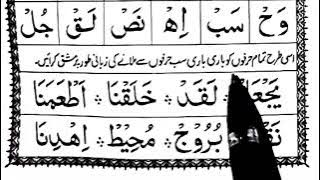 وَحْ سَبْ اِهْ نَصْ لَقْ جُلْ
اسی طرح تمام حرفوں کو باری باری سب حرفوں سے ملانے کی زبانی طور پر مشق کرائیں۔
لَقَدْ خَلَقْنَا اَطْعَمَنَا
بُرُوْجٍ مُحِيْطٌ اِهْدِنَا